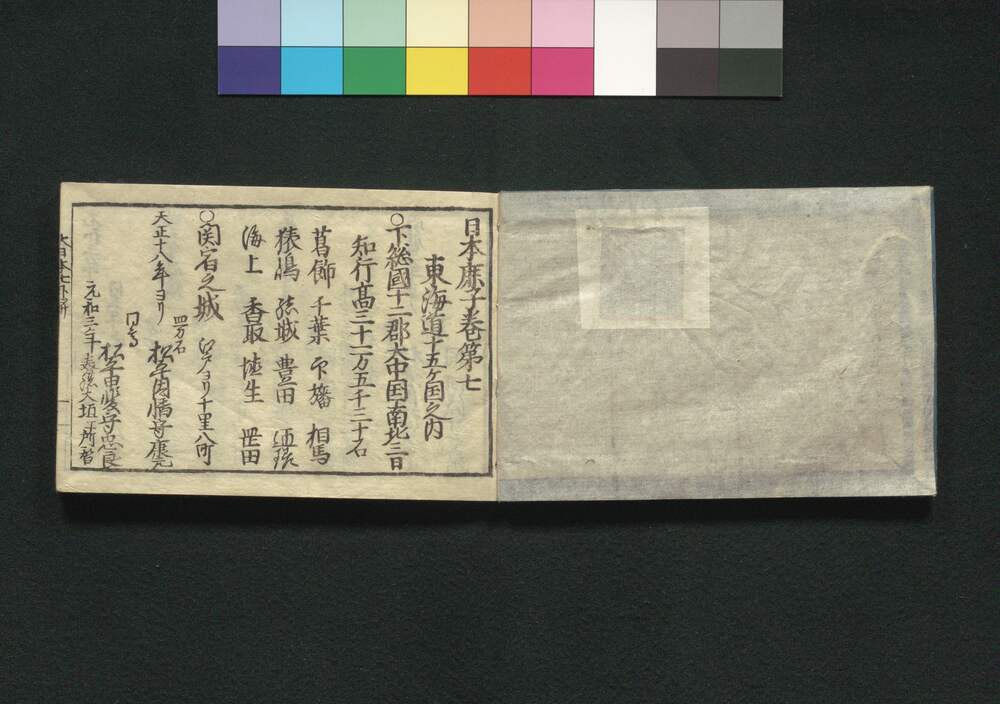 日本鹿子巻第七
東海道十五ヶ国之内
○下総國十二郡大中国南北三日
知行髙三十一万五千三十石
葛飾 千葉 印旛 相馬
猿嶋 結城 豊田 匝瑳
海上 香取 埴生 罡田
○関宿之城 江戸ヨリ十里八町
天正十八年ヨリ 四万石 松平因幡守康元
同 松平甲斐守忠良
元和三年 大垣 所替